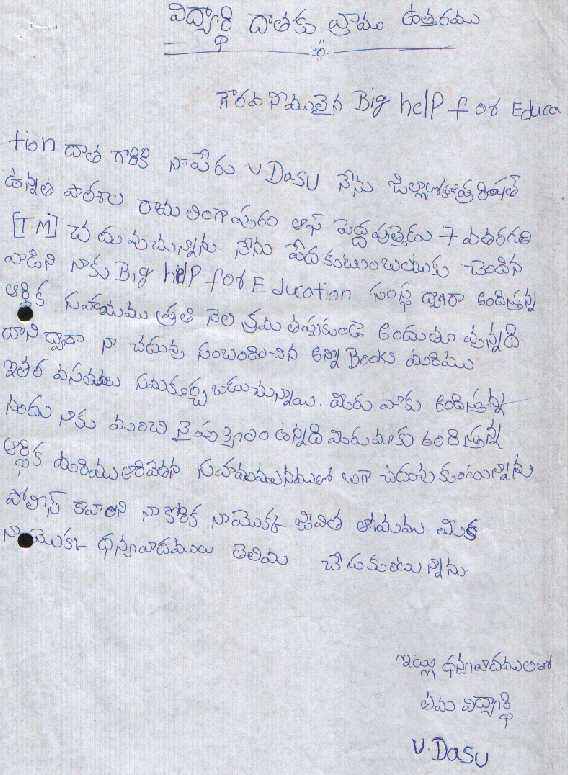 విద్యార్థి దాతకు వ్రాయు ఉత్తరము
గౌరవనీయులైన Big help for Educa
tion దాత గారికి నాపేరు V.DaSU నేను జిల్లా పరిషత్
ఉన్నత పాఠశాల రామలింగాపురం ఆఫ్ పెద్దపుత్తేడు 7 వతరగతి
[TM] చదువుచున్నాను నేను పేదకుటుంబమునకు చెందిన
వాడిని నాకు Big help for Education సంస్థ ద్వారా అందిస్తున్న
ఆర్థిక సహాయము ప్రతి నెల క్రమం తప్పకుండా అందుతూ ఉన్నది
దాని ద్వారా నా చదువు సంబంధించిన అన్ని Books మరియు
ఇతర వసతులు సమకూర్చబడుచున్నాయి. మీరు నాకు అందిస్తున్న
నందు నాకు మంచి నైపుణ్యం ఉన్నది మీరు నాకు అందిస్తున్న
ఆర్థిక మరియు సహాయ బాగా చదువుకుంటున్నాను
పోలీస్ కావాలని నా కోరిక నాయొక్క జీవిత ధ్యేయము మీకు
నాయొక్క ధన్యవాదములు తెలియ చేసుకుంటున్నాను
ఇట్లు ధన్యవాదములతో
మీ విద్యార్థి
V.DaSU